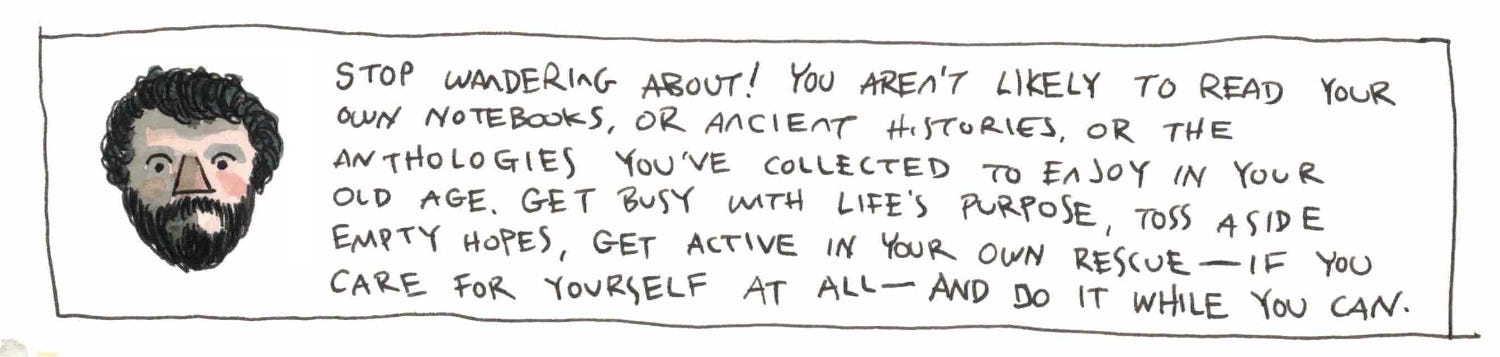 STOP WANDERING ABOUT! YOU AREN'T LIKELY TO READ YOUR
OWN NOTEBOOKS, OR ANCIENT HISTORIES, OR THE
ANTHOLOGIES YOU'VE COLLECTED TO ENJOY IN YOUR
OLD AGE. GET BUSY WITH LIFE'S PURPOSE, TOSS ASIDE
EMPTY HOPES, GET ACTIVE IN YOUR OWN RESCUE—IF YOU
CARE FOR YOURSELF AT ALL—AND DO IT WHILE YOU CAN.